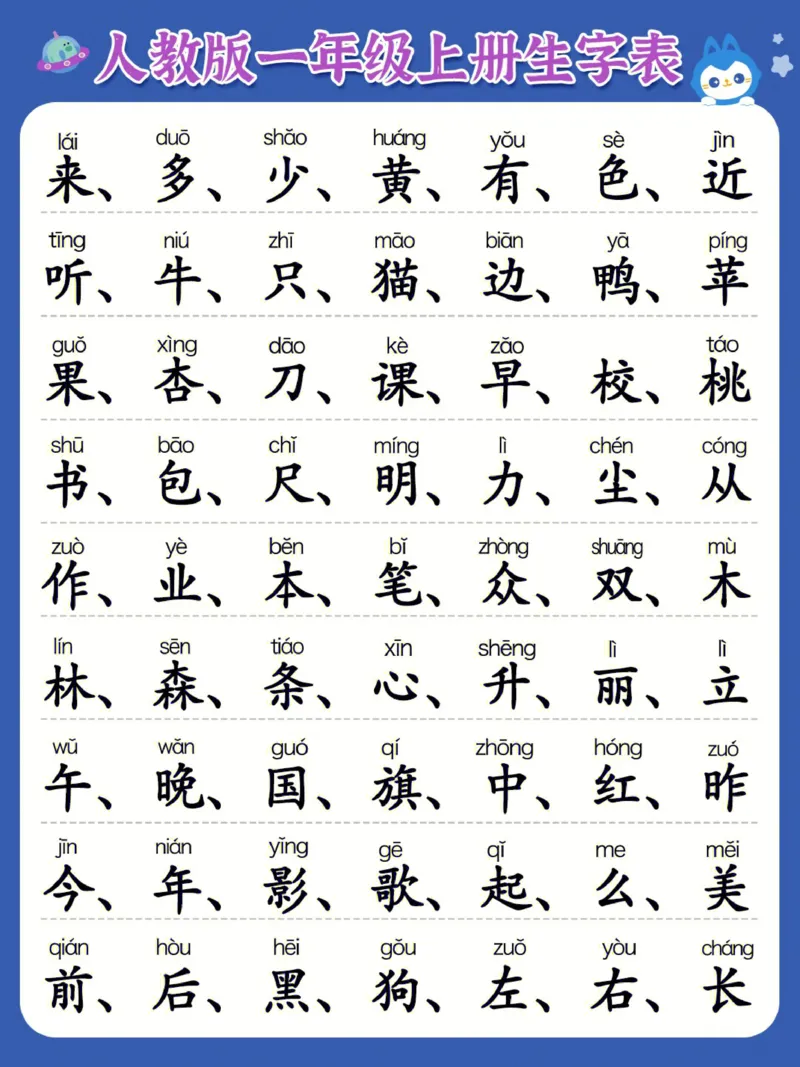 人教版一年级上册生字表
lái duō shǎo huáng yǒu sè jìn
来、多、少、黄、有、色、近
tīng niú zhī māo biān yā píng
听、牛、只、猫、边、鸭、苹
guǒ xìng dāo kè zǎo táo
果、杏、刀、课、早、校、桃
shū bāo chǐ míng lì chén cóng
书、包、尺、明、力、尘、从
zuò yè běn bǐ zhòng shuāng mù
作、业、本、笔、众、双、木
lín sēn tiáo xīn shēng lì lì
林、森、条、心、升、丽、立
wǔ wǎn guó qí zhōng hóng zuó
午、晚、国、旗、中、红、昨
jīn nián yǐng gē qǐ me měi
今、年、影、歌、起、么、美
qián hòu hēi gǒu zuǒ yòu cháng
前、后、黑、狗、左、右、长